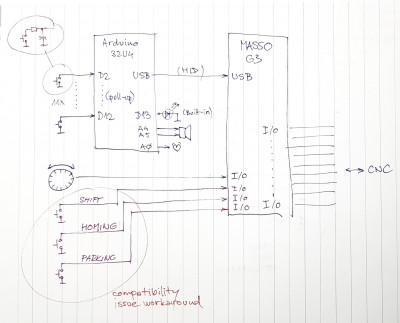 Arduino
32U4
MASSO
G3
D2
USB
(HID)
USB
(pull-up)
11x
D12
D13
(Built-in)
A4
A5
A0
I/O
I/O
I/O
I/O
I/O
I/O
I/O
CNC
SHIFT
HOMING
PARKING
compatibility
issue workaround